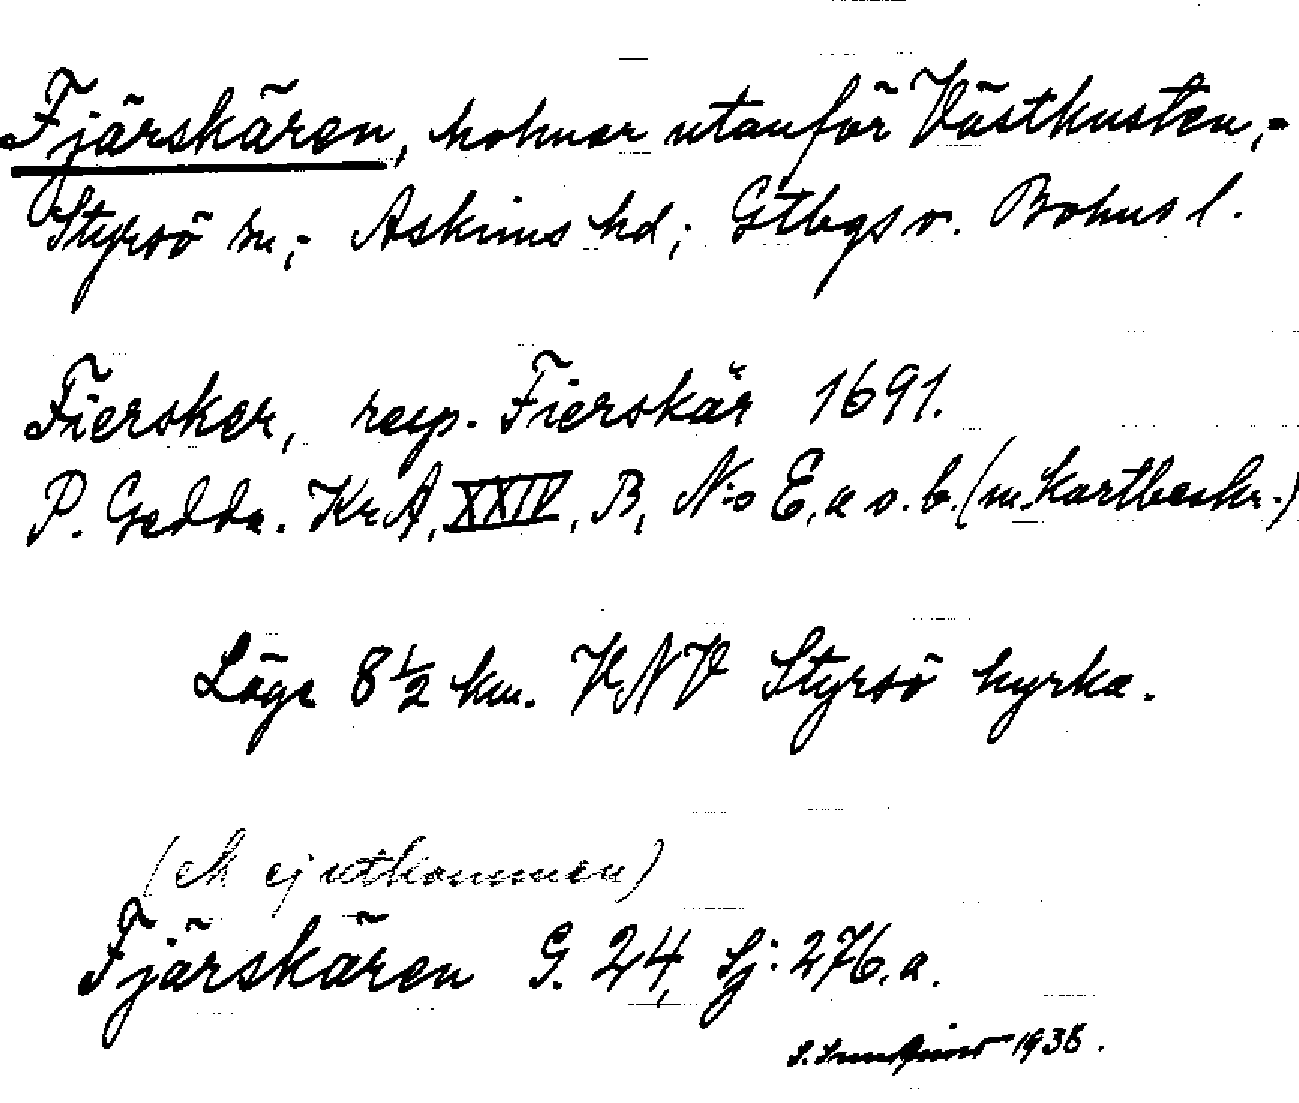 Fjärskären, holmar utanför Västkusten,-
Styrsö sn,- Askims hd; Gtbgs o. Bohus l.
Fiersker, resp. Fierskär 1691.
P. Gedda. KrA, XXIV, B, N:o E, a o. b. (m. kartbeskr.)
Läge 8 1/2 km. VNV Styrsö kyrka.
(ek ej utkommen)
Fjärskären G. 24, Sj: 276.a.
1938.